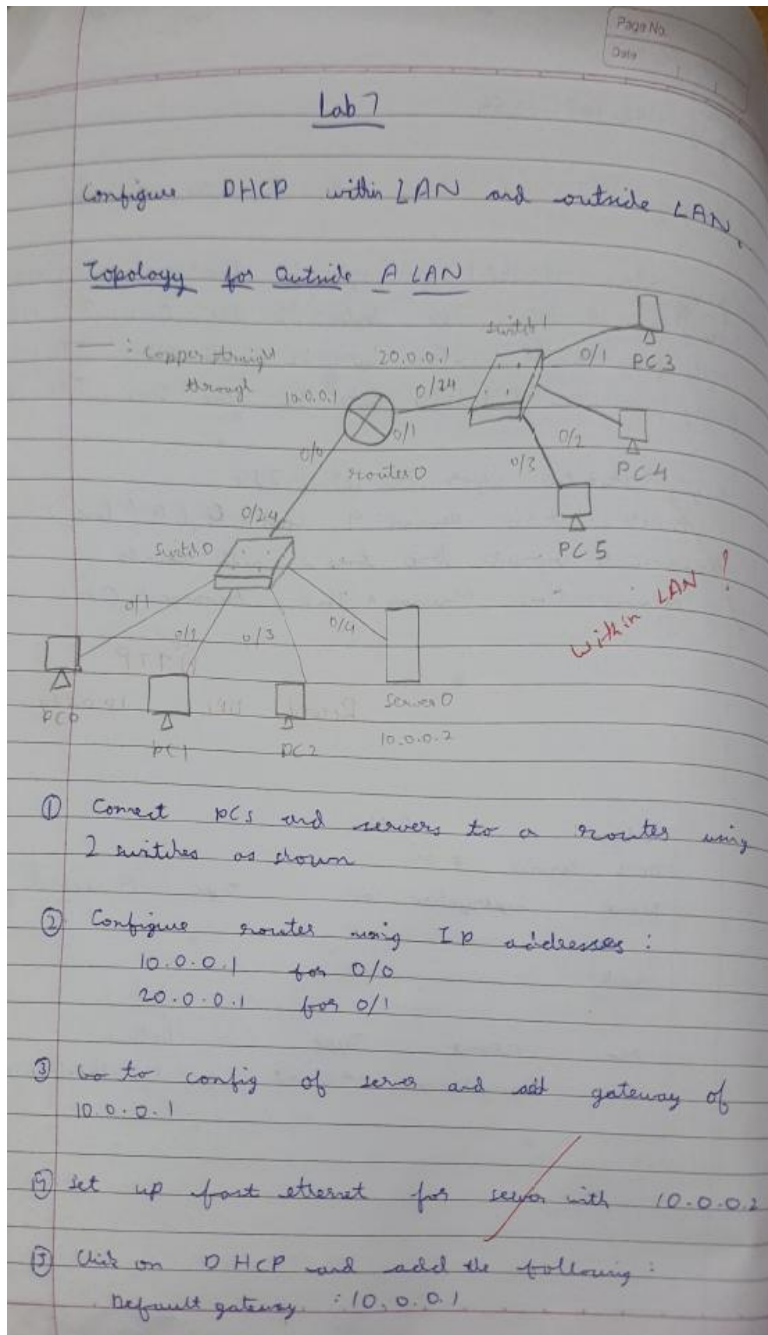 Page No.
Date
Lab 7
Configure DHCP within LAN and outside LAN.
Topology for Outside A LAN
switch 1
— : Copper straight
through
20.0.0.1
0/1
PC3
10.0.0.1
0/24
0/1
0/0
router 0
0/2
PC4
0/3
PC5
0/24
Switch 0
within LAN !
0/1
0/2
0/3
0/4
PC0
PC1
PC2
Server 0
10.0.0.2
① Connect PCs and servers to a router using
2 switches as shown
② Configure router using IP addresses :
10.0.0.1 for 0/0
20.0.0.1 for 0/1
③ Go to config of server and add gateway of
10.0.0.1
④ Set up fast ethernet for server with 10.0.0.2
⑤ Click on DHCP and add the following :
Default gateway : 10.0.0.1